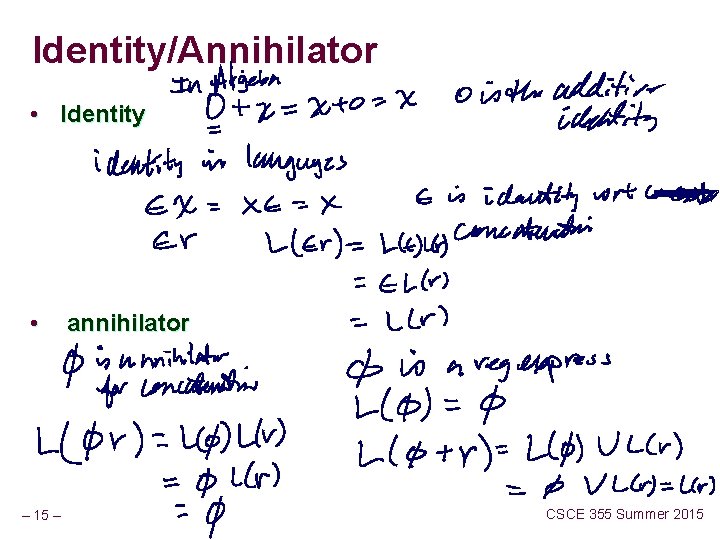 Identity/Annihilator
In Algebra
• Identity
0 + x = x + 0 = x
0 is the additive identity
identity in languages
∈x = x∈ = x
∈ is identity wrt
concatenation
∈r
L(∈r) = L(∈)L(r)
= ∈L(r)
= L(r)
• annihilator
ϕ is annihilator
for concatenation
ϕ is a reg express
L(ϕ) = ϕ
L(ϕr) = L(ϕ) L(r)
= ϕ L(r)
= ϕ
L(ϕ + r) = L(ϕ) ∪ L(r)
= ϕ ∪ L(r) = L(r)
– 15 –
CSCE 355 Summer 2015